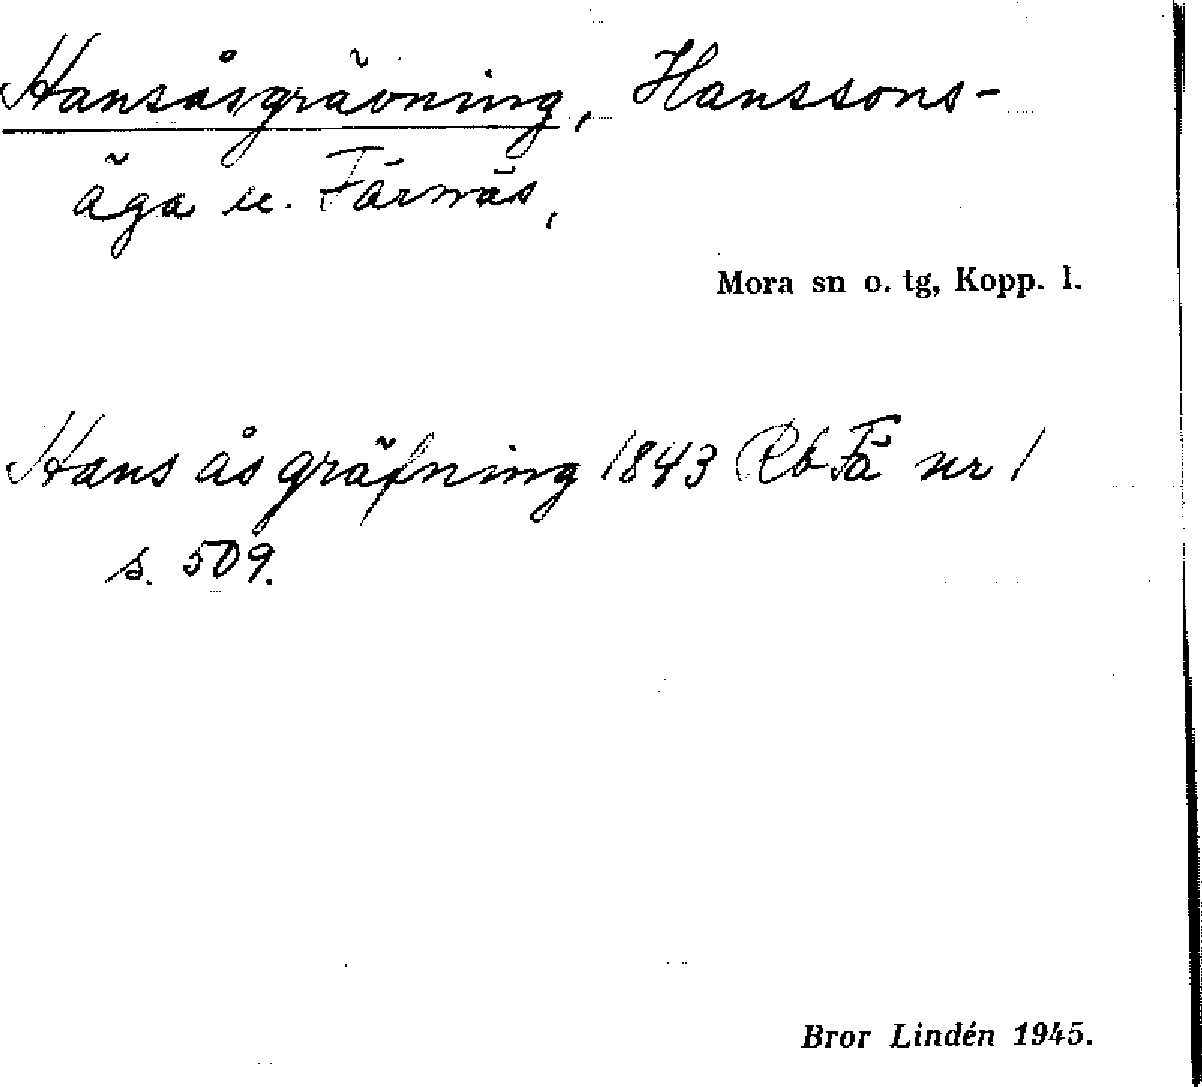 Hansåsgrävning, Hanssons-
äga u. Färnäs,
Mora sn o. tg, Kopp. l.
Hans ås gräfning 1843 Rb Fä nr 1
s. 509.
Bror Lindén 1945.